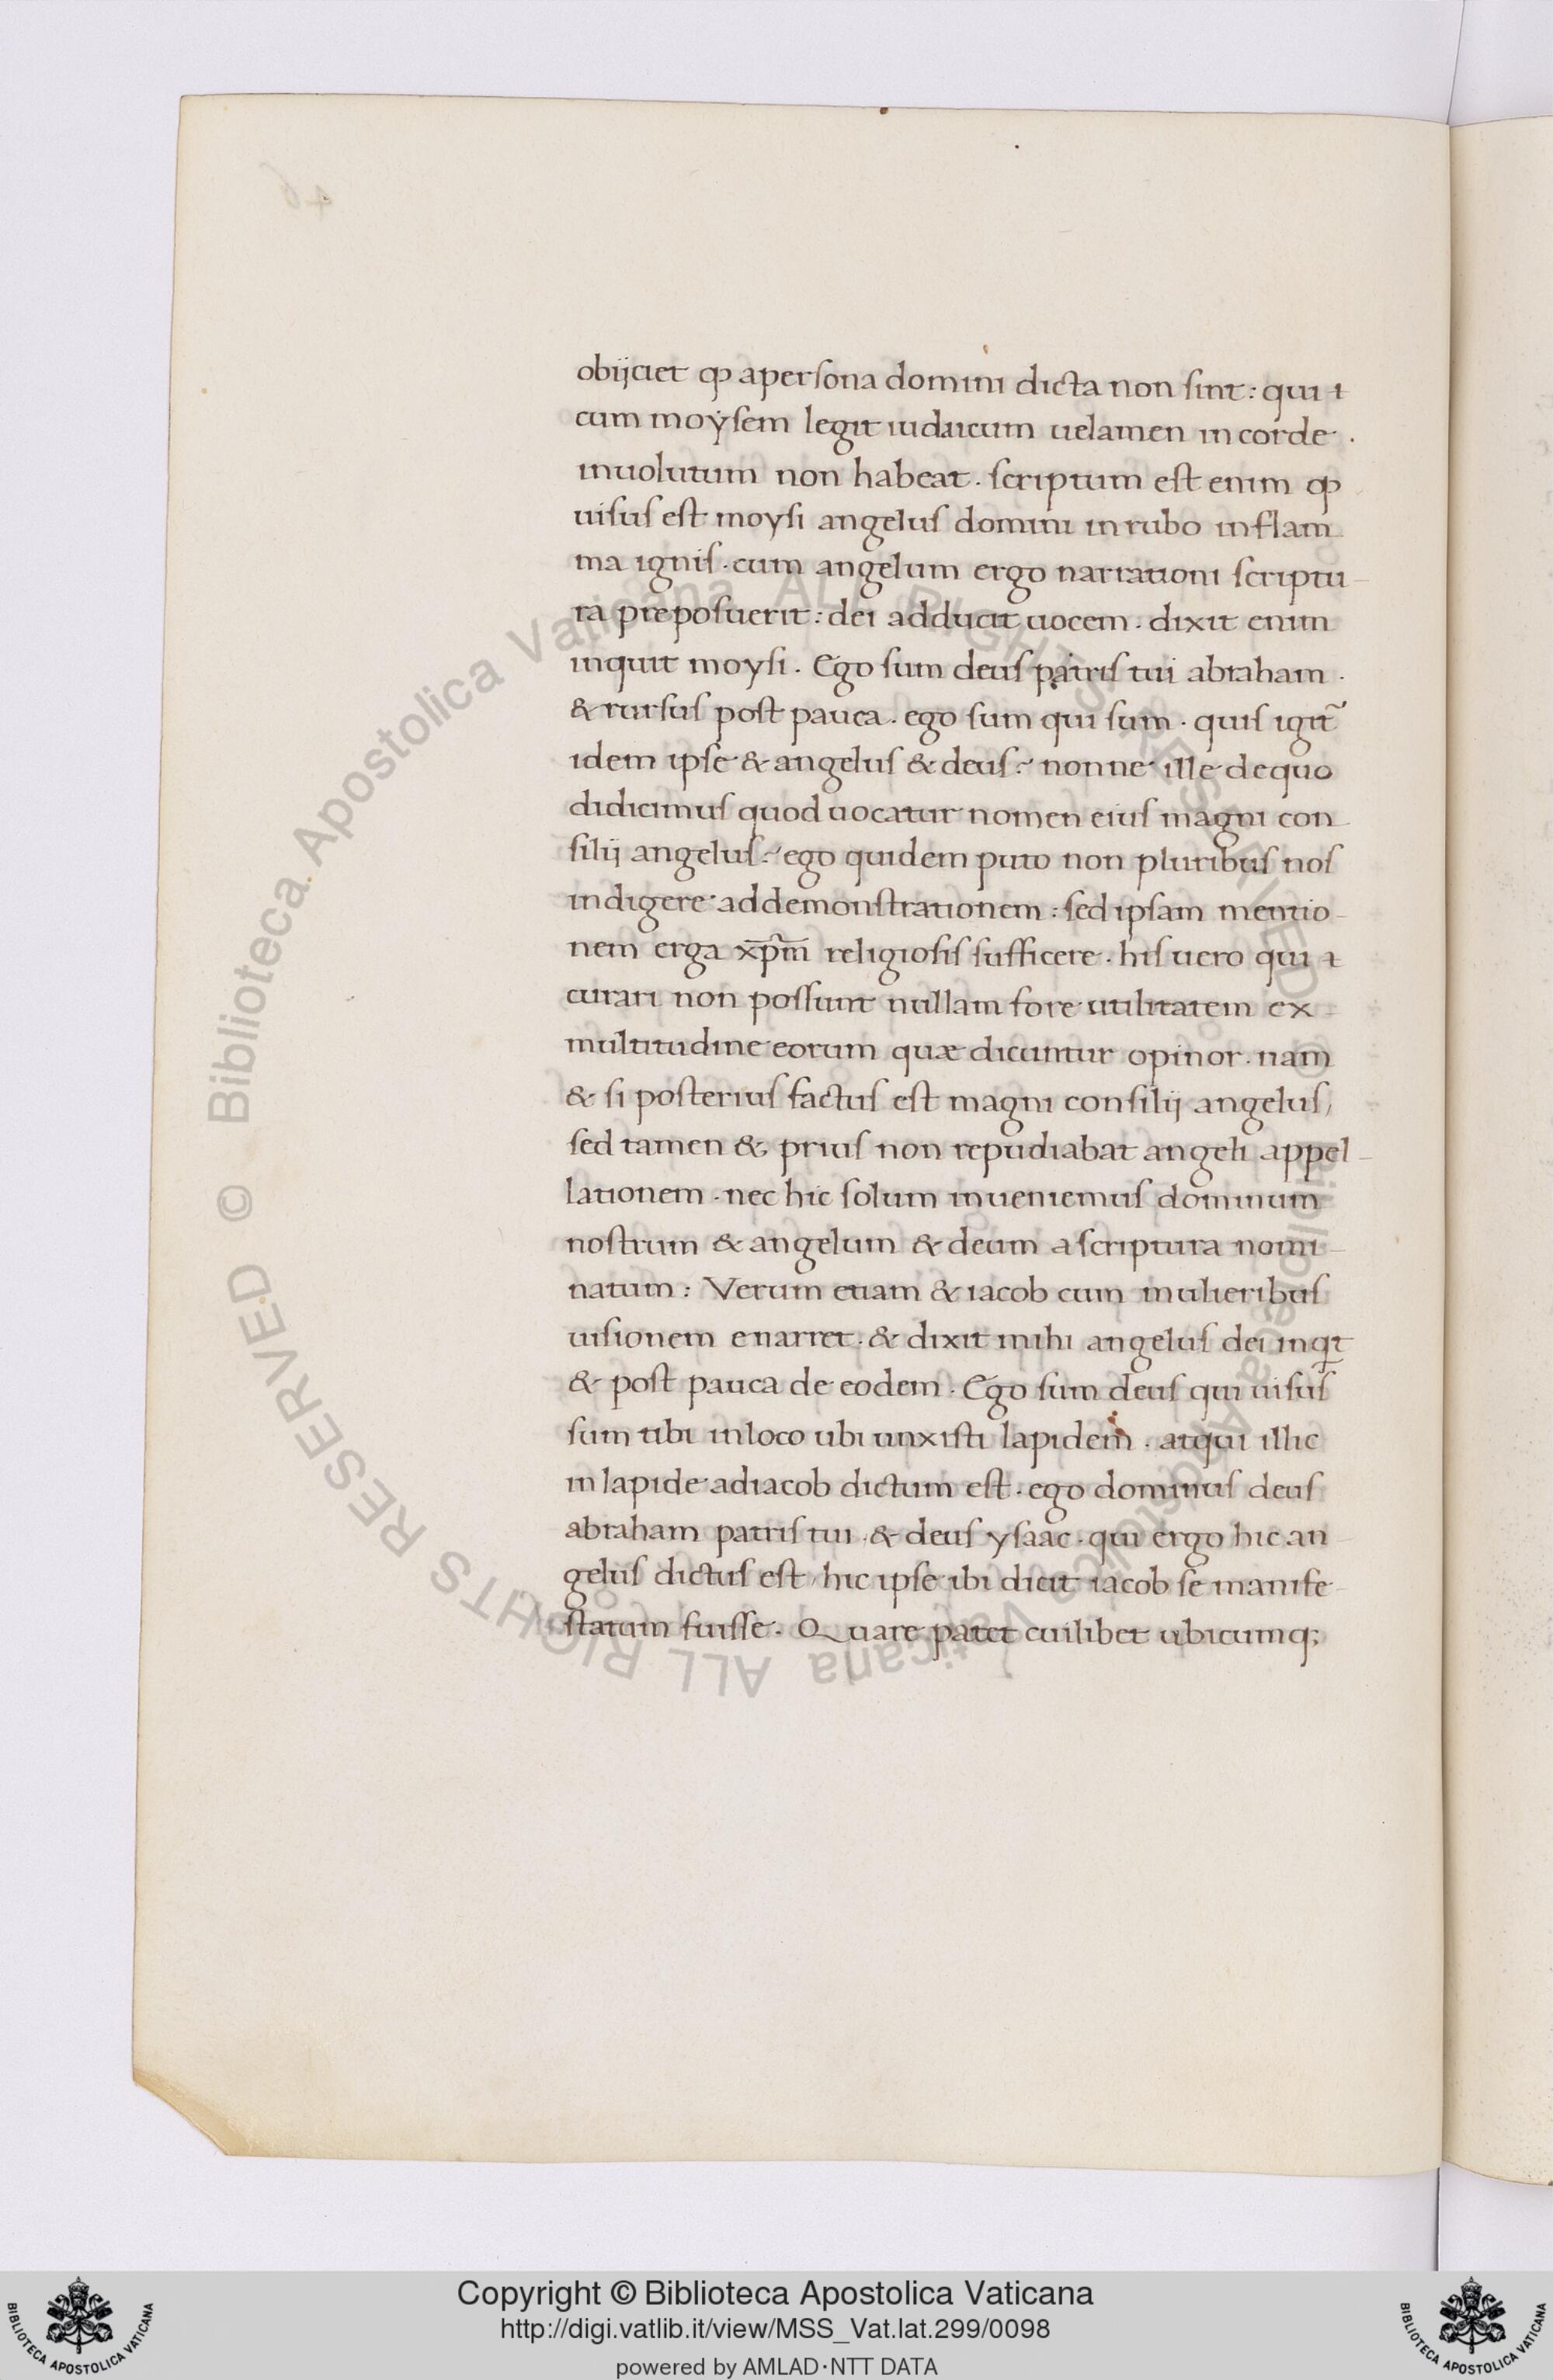 obijciet ꝙ apersona domini dicta non sint: qui
cum moẏsem legit iudaicum uelamen in corde.
inuolutum non habeat. scriptum est enim ꝙ
uisus est moysi angelus domini in rubo in flam
ma ignis. cum angelum ergo narrationi scriptu-
ra preposuerit: dei adducit uocem. dixit enim
inquit moysi. Ego sum deus patris tui abraham.
& rursus post pauca. ego sum qui sum. quis igit᷑
idem ipse & angelus & deus? nonne ille de quo
didicimus quod uocatur nomen eius magni con
silij angelus? ego quidem puto non pluribus nos
indigere ad demonstrationem: sed ipsam mentio-
nem erga xp̄m̄ religiosis sufficere. his uero qui
curari non possunt nullam fore utilitatem ex
multitudine eorum quæ dicuntur opinor. nam
& si posterius factus est magni consilij angelus,
sed tamen & prius non repudiabat angeli appel-
lationem. nec hic solum inueniemus dominum
nostrum & angelum & deum a scriptura nomi-
natum: Verum etiam & iacob cum mulieribus
uisionem enarret. & dixit mihi angelus dei inqt
& post pauca de eodem. Ego sum deus qui uisus
sum tibi in loco ubi unxisti lapidem. atqui illic
in lapide ad iacob dictum est. ego dominus deus
abraham patris tui. & deus ysaac. qui ergo hic an-
gelus dictus est, hic ipse ibi dicit iacob se manife-
statum fuisse. Quare patet cuilibet ubicumq;
© Biblioteca Apostolica Vaticana ALL RIGHTS RESERVED © Biblioteca Apostolica Vaticana ALL RIGHTS RESERVED
Copyright © Biblioteca Apostolica Vaticana
http://digi.vatlib.it/view/MSS_Vat.lat.299/0098
powered by AMLAD·NTT DATA
BIBLIOTECA APOSTOLICA VATICANA
BIBLIOTECA APOSTOLICA VATICANA